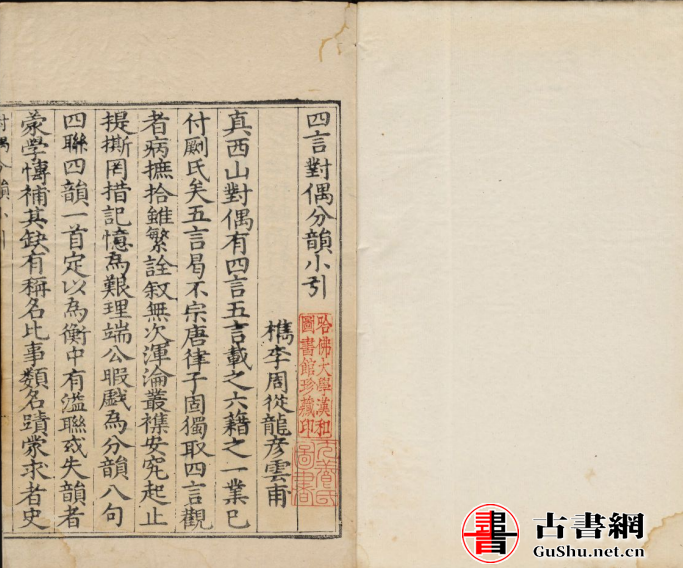 四言對偶分韻小引
檇李周從龍彦雲甫
真西山對偶有四言五言載之六籍之一業已
付劂氏矣五言曷不宗唐律子固獨取四言觀
者病摭拾雖繁詮叙無次渾淪叢襍安究起止
提撕罔措記憶為艱理端公暇戲為分韻八句
四聯四韻一首定以為衡中有溢聯或失韻者
蒙學慱補其缺有稱名比事類名蹟蒙求者史
對偶分韻小引
哈佛大學漢和
圖書館珍藏印
古書網
GuShu.net.cn